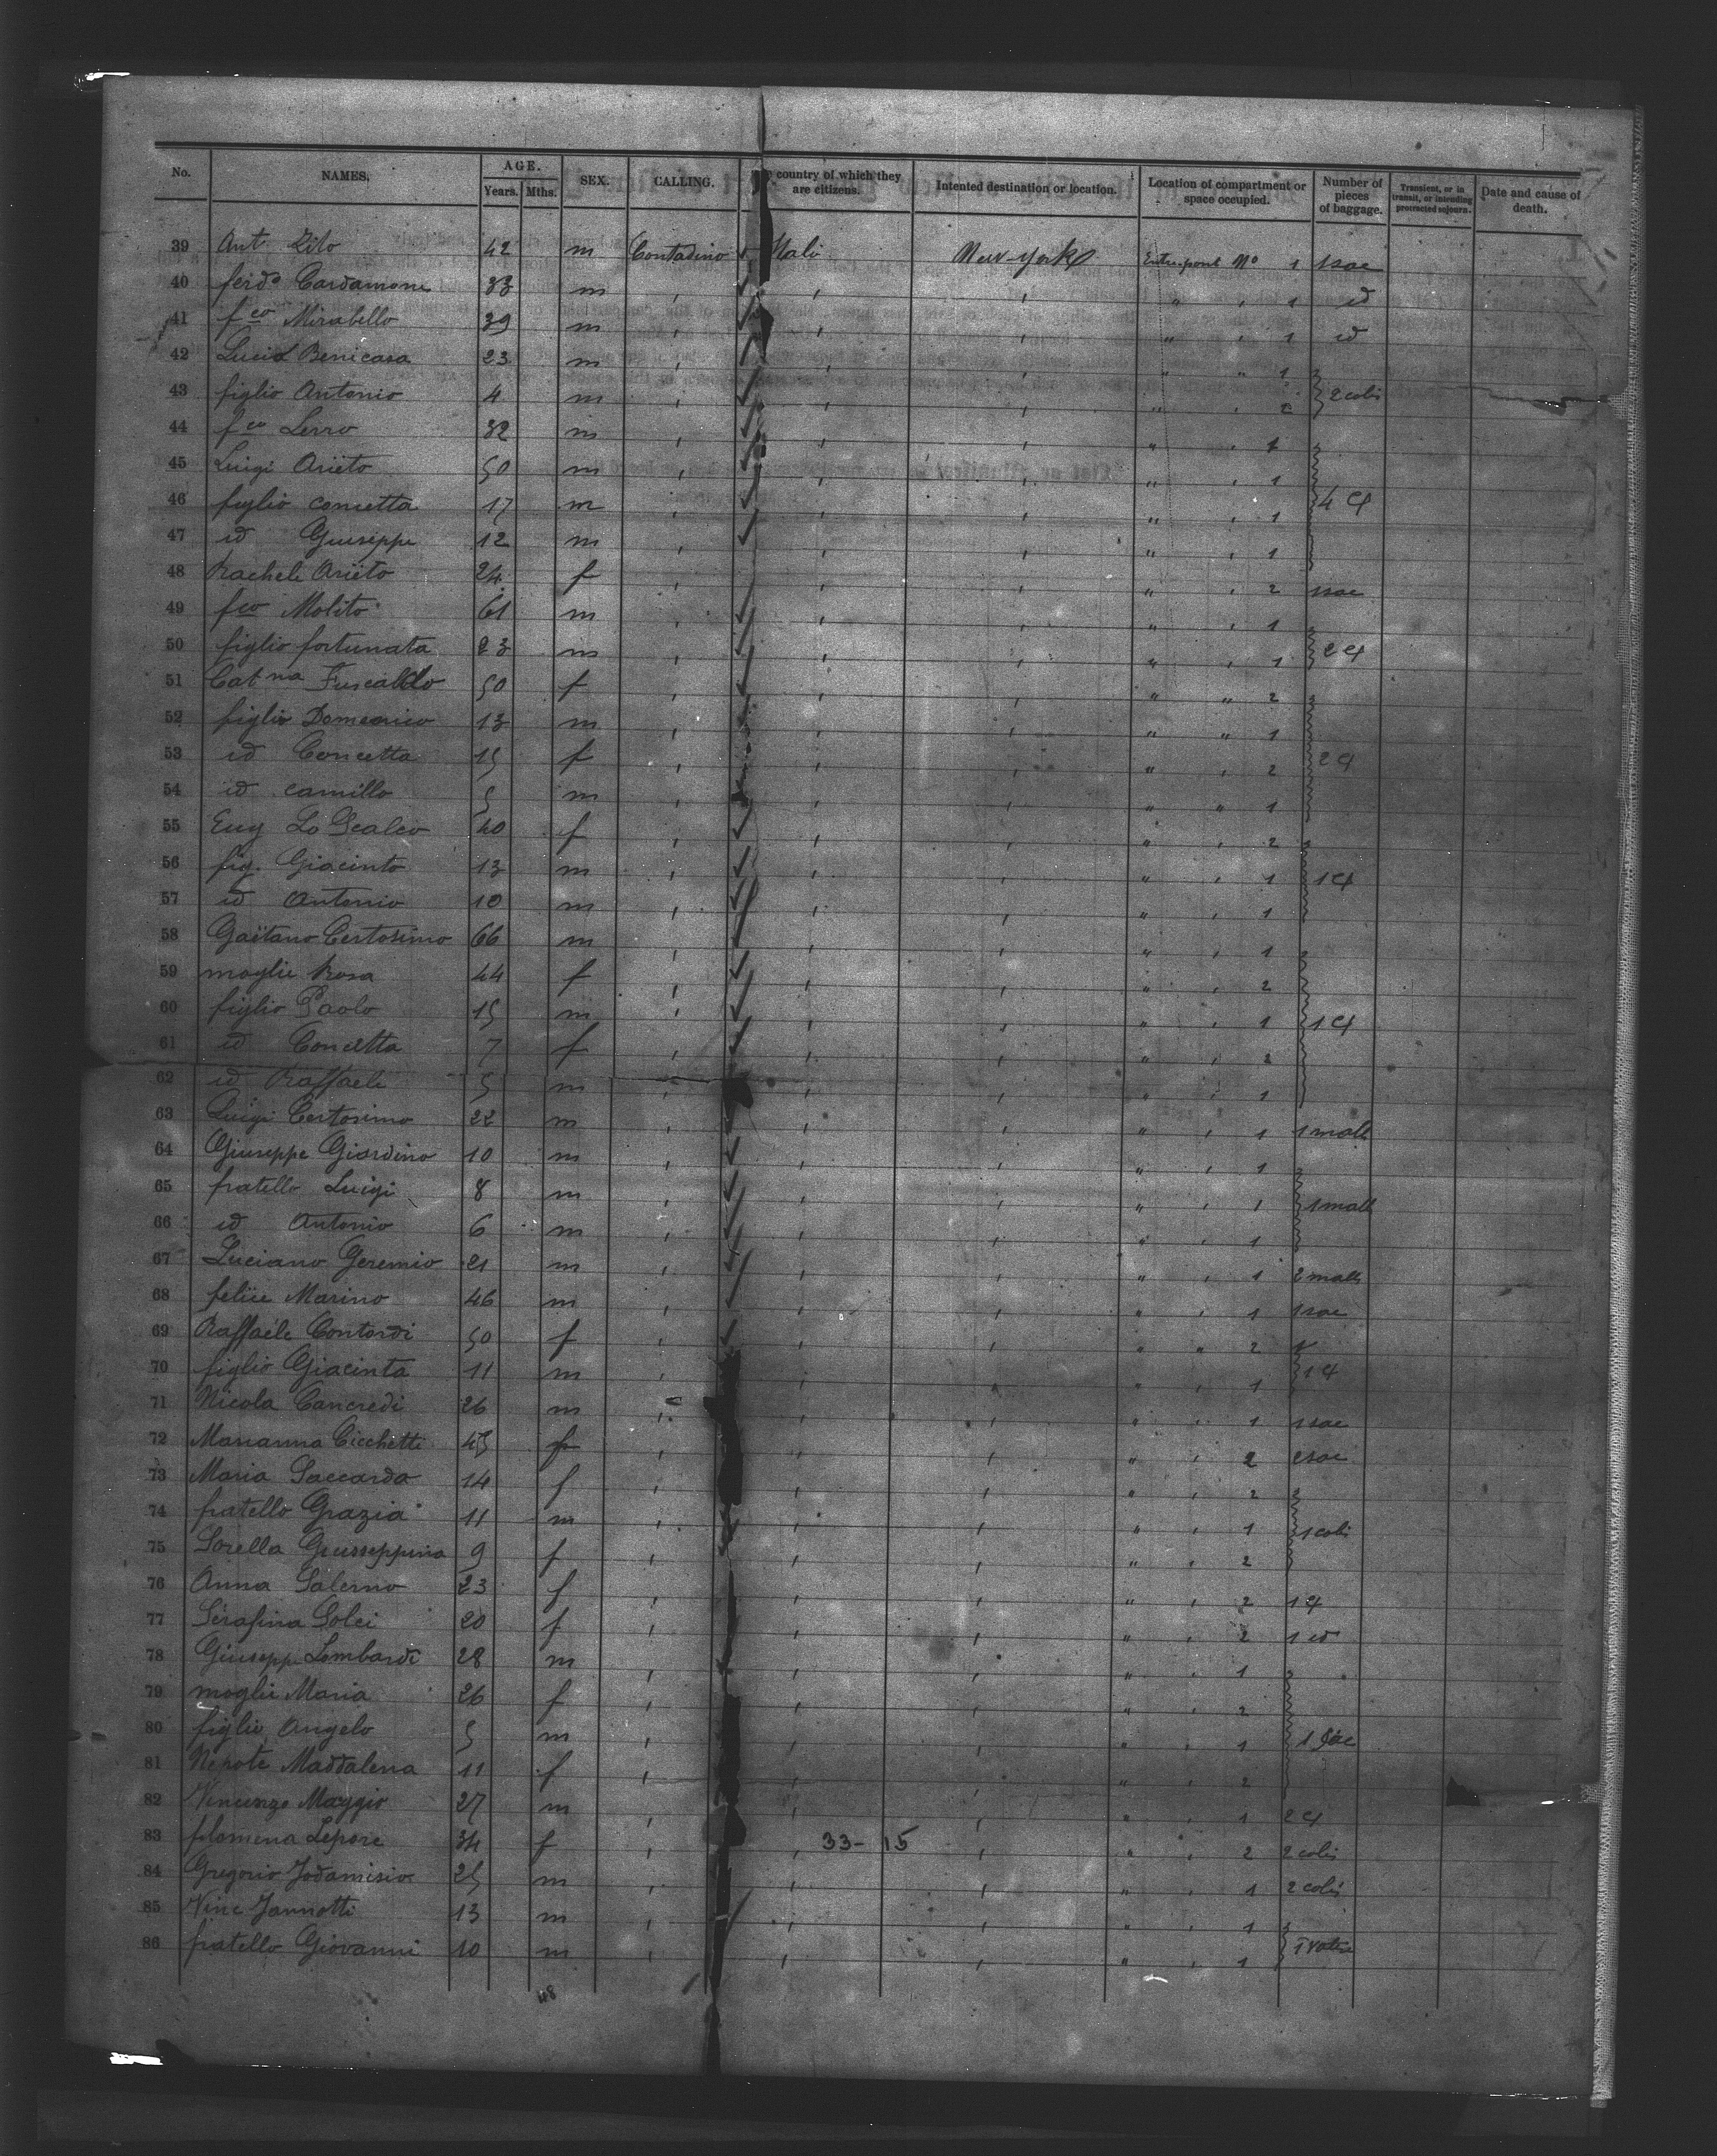 No. NAMES. AGE. Years. Mths. SEX. CALLING. country of which they are citizens. Intented destination or location. Location of compartment or space occupied. Number of pieces of baggage. Transient, or in transit, or intending protracted sojourn. Date and cause of death.
39 Ant Zito 42 m Contadino Itali New-york Entrepont No 1 1 sac
40 ferdo Cardamone 33 m , , , " , 1 id
41 fco Mirabello 39 m , , , " , 1 id
42 Lucia Benicasa 23 m , , , " " 1
43 figlio Antonio 4 m , , , " , 2 colis
44 fco Lerro 32 m , , , " , 1
45 Luigi Arieto 50 m , , , " , 1
46 figlio concetta 17 m , , , " , 1 4 Cf
47 id Guiseppe 12 m , , , " , 1
48 Rachele Arieto 24 f , , , " , 2 1 sac
49 fco Molito 61 m , , , " , 1
50 figlio fortunata 23 m , , , " , 1 2 Cf
51 Catna Fuscaldo 50 f , , , " " 2
52 figlio Domenico 13 m , , , " " 1
53 id Concetta 15 f , , , " , 2 2 Cf
54 id camillo 5 m , , , " " 1
55 Eug Lo Scalco 40 f , , , " , 2
56 fig. Giacinto 13 m , , , " , 1 1 Cf
57 id Antonio 10 m , , , " , 1
58 Gaëtano Certosimo 66 m , , , " , 1
59 moglie Rosa 44 f , , , " , 2
60 figlio Paolo 15 m , , , " , 1 1 Cf
61 id Concetta 7 f , , , " , 2
62 id Raffaele 5 m , , , " , 1
63 Luigi Certosimo 22 m , , , " , 1 1 mall
64 Giuseppe Giordino 10 m , , , " , 1
65 fratello Luigi 8 m , , , " , 1 1 mall
66 id Antonio 6 m , , , " , 1
67 Luciano Geremio 21 m , , , " , 1 2 malls
68 felice Marino 46 m , , , " , 1 1 sac
69 Raffaële Contordi 50 f , , , " " 2
70 figlio Giacinta 11 m , , , " , 1 1 Cf
71 Nicola Cancredi 26 m , , , " , 1 1 sac
72 Marianna Cicchetti 45 f , , , " , 2 2 sac
73 Maria Saccardo 14 f , , , " , 2
74 fratello Grazia 11 m , , , " , 1 1 colis
75 Sorella Giusseppina 9 f , , , " , 2
76 Anna Salerno 23 f , , , " , 2 1 Cf
77 Sérafina Solei 20 f , , , " , 2 1 id
78 Giuseppe Lombardi 28 m , , , " , 1
79 moglie Maria 26 f , , , " , 2
80 figlio Angelo 5 m , , , " , 1 1 sac
81 Nepote Maddalena 11 f , , , " , 2
82 Vincenzo Maggio 27 m , , , " , 1 2 Cf
83 filomena Lepore 34 f , , 33-15 , " , 2 2 colis
84 Gregorio Jodamisio 25 m , , , " , 1 2 colis
85 Vinc Jannotti 13 m , , , " , 1
86 fratello Giovanni 10 m , , , " , 1
48